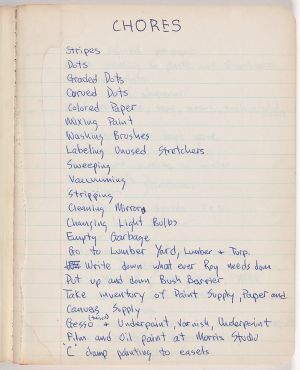 CHORES
Stripes
Dots
Graded Dots
Carved Dots
Colored Paper
Mixing Paint
Washing Brushes
Labeling Unused Stretchers
Sweeping
Vacuuming
Stripping
Cleaning Mirrors
Changing Light Bulbs
Empty Garbage
Go to Lumber Yard, Lumber + Turp.
Write down what ever Roy needs done
Put up and down Bush Barrier
Take inventory of Paint Supply, Paper and
Canvas Supply
Gesso (twice) + Underpaint, Varnish, Underpaint
Film and Oil paint at Morris Studio
"C" clamp painting to easels